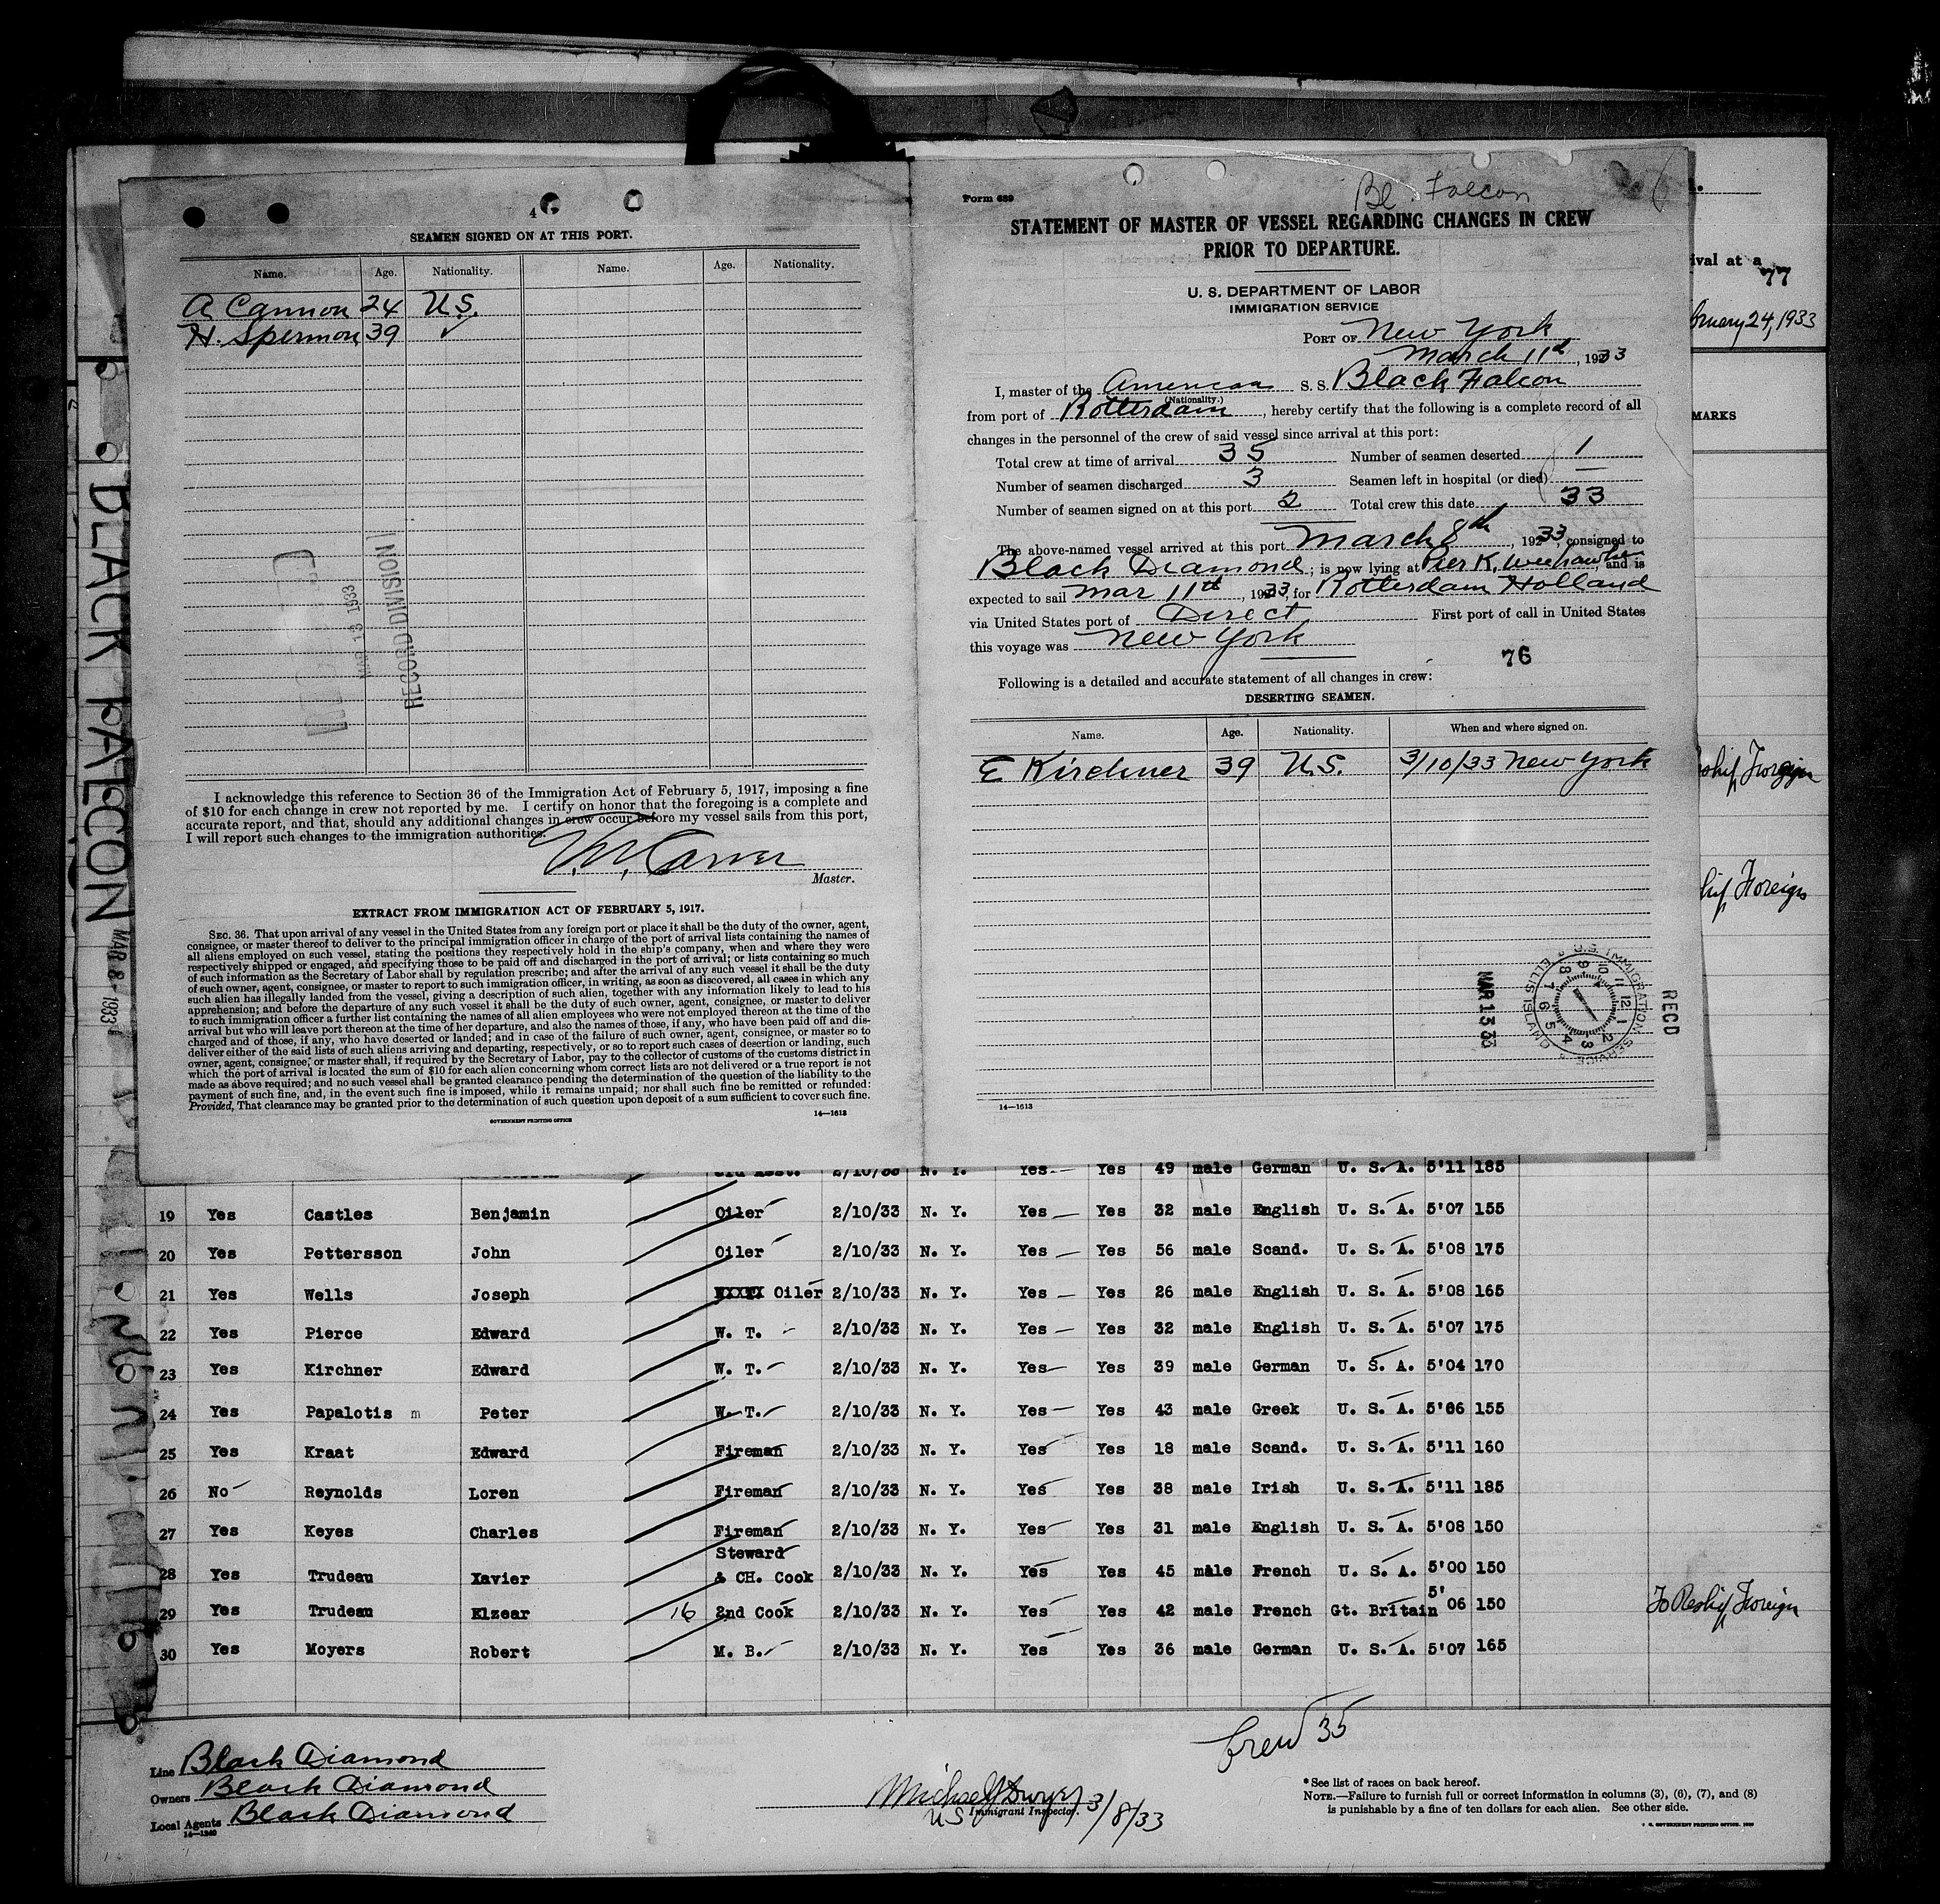 4
SEAMEN SIGNED ON AT THIS PORT.
Name. Age. Nationality. Name. Age. Nationality.
A Cannon 24 U.S.
H. Spermon 39 ✓
MAR 13 1933
RECORD DIVISION
I acknowledge this reference to Section 36 of the Immigration Act of February 5, 1917, imposing a fine
of $10 for each change in crew not reported by me. I certify on honor that the foregoing is a complete and
accurate report, and that, should any additional changes in crew occur before my vessel sails from this port,
I will report such changes to the immigration authorities.
Master.
EXTRACT FROM IMMIGRATION ACT OF FEBRUARY 5, 1917.
SEC. 36. That upon arrival of any vessel in the United States from any foreign port or place it shall be the duty of the owner, agent,
consignee, or master thereof to deliver to the principal immigration officer in charge of the port of arrival lists containing the names of
all aliens employed on such vessel, stating the positions they respectively hold in the ship's company, when and where they were
respectively shipped or engaged, and specifying those to be paid off and discharged in the port of arrival; or lists containing so much
of such information as the Secretary of Labor shall by regulation prescribe; and after the arrival of any such vessel it shall be the duty
of such owner, agent, consignee, or master to report to such immigration officer, in writing, as soon as discovered, all cases in which any
such alien has illegally landed from the vessel, giving a description of such alien, together with any information likely to lead to his
apprehension; and before the departure of any such vessel it shall be the duty of such owner, agent, consignee, or master to deliver
to such immigration officer a further list containing the names of all alien employees who were not employed thereon at the time of the
arrival but who will leave port thereon at the time of her departure, and also the names of those, if any, who have been paid off and dis-
charged and of those, if any, who have deserted or landed; and in case of the failure of such owner, agent, consignee, or master so to
deliver either of the said lists of such aliens arriving and departing, respectively, or so to report such cases of desertion or landing, such
owner, agent, consignee, or master shall, if required by the Secretary of Labor, pay to the collector of customs of the customs district in
which the port of arrival is located the sum of $10 for each alien concerning whom correct lists are not delivered or a true report is not
made as above required; and no such vessel shall be granted clearance pending the determination of the question of the liability to the
payment of such fine, and, in the event such fine is imposed, while it remains unpaid; nor shall such fine be remitted or refunded:
Provided, That clearance may be granted prior to the determination of such question upon deposit of a sum sufficient to cover such fine.
GOVERNMENT PRINTING OFFICE
14—1613
Form 689
Bl. Falcon
STATEMENT OF MASTER OF VESSEL REGARDING CHANGES IN CREW
PRIOR TO DEPARTURE.
U. S. DEPARTMENT OF LABOR
IMMIGRATION SERVICE
PORT OF New York
March 11th, 1933
I, master of the American S. S. Black Falcon
(Nationality.)
from port of Rotterdam, hereby certify that the following is a complete record of all
changes in the personnel of the crew of said vessel since arrival at this port:
Total crew at time of arrival 35 Number of seamen deserted 1
Number of seamen discharged 3 Seamen left in hospital (or died) —
Number of seamen signed on at this port 2 Total crew this date 33
The above-named vessel arrived at this port March 8th, 1933, consigned to
Black Diamond; is now lying at Pier K, Weehawken, and is
expected to sail Mar 11th, 1933, for Rotterdam Holland
via United States port of Direct First port of call in United States
this voyage was New York
76
Following is a detailed and accurate statement of all changes in crew:
DESERTING SEAMEN.
Name. Age. Nationality. When and where signed on.
E Kirchner 39 U.S. 3/10/33 New York
U.S. IMMIGRATION SERVICE ELLIS ISLAND
MAR 13 33
RECD
14—1613
ival at a
77
bruary 24, 1933
MARKS
ship Foreign
hip Foreign
BLACK FALCON
MAR 8 - 1933
2/10/33 N. Y. Yes Yes 49 male German U. S. A. 5'11 185
19 Yes Castles Benjamin Oiler 2/10/33 N. Y. Yes Yes 32 male English U. S. A. 5'07 155
20 Yes Pettersson John Oiler 2/10/33 N. Y. Yes Yes 56 male Scand. U. S. A. 5'08 175
21 Yes Wells Joseph Oiler 2/10/33 N. Y. Yes Yes 26 male English U. S. A. 5'08 165
22 Yes Pierce Edward W. T. 2/10/33 N. Y. Yes Yes 32 male English U. S. A. 5'07 175
23 Yes Kirchner Edward W. T. 2/10/33 N. Y. Yes Yes 39 male German U. S. A. 5'04 170
24 Yes Papalotis m Peter W. T. 2/10/33 N. Y. Yes Yes 43 male Greek U. S. A. 5'06 155
25 Yes Kraat Edward Fireman 2/10/33 N. Y. Yes Yes 18 male Scand. U. S. A. 5'11 160
26 No Reynolds Loren Fireman 2/10/33 N. Y. Yes Yes 38 male Irish U. S. A. 5'11 185
27 Yes Keyes Charles Fireman 2/10/33 N. Y. Yes Yes 31 male English U. S. A. 5'08 150
28 Yes Trudeau Xavier Steward & CH. Cook 2/10/33 N. Y. Yes Yes 45 male French U. S. A. 5'00 150
29 Yes Trudeau Elzear 16 2nd Cook 2/10/33 N. Y. Yes Yes 42 male French Gt. Britain 5'06 150 To Reship Foreign
30 Yes Moyers Robert M. B. 2/10/33 N. Y. Yes Yes 36 male German U. S. A. 5'07 165
Crew 35
Line Black Diamond
Owners Black Diamond
Local Agents Black Diamond
14—1240
Michael J Dwyer 3/8/33
US Immigrant Inspector.
*See list of races on back hereof.
NOTE.—Failure to furnish full or correct information in columns (3), (6), (7), and (8)
is punishable by a fine of ten dollars for each alien. See other side.